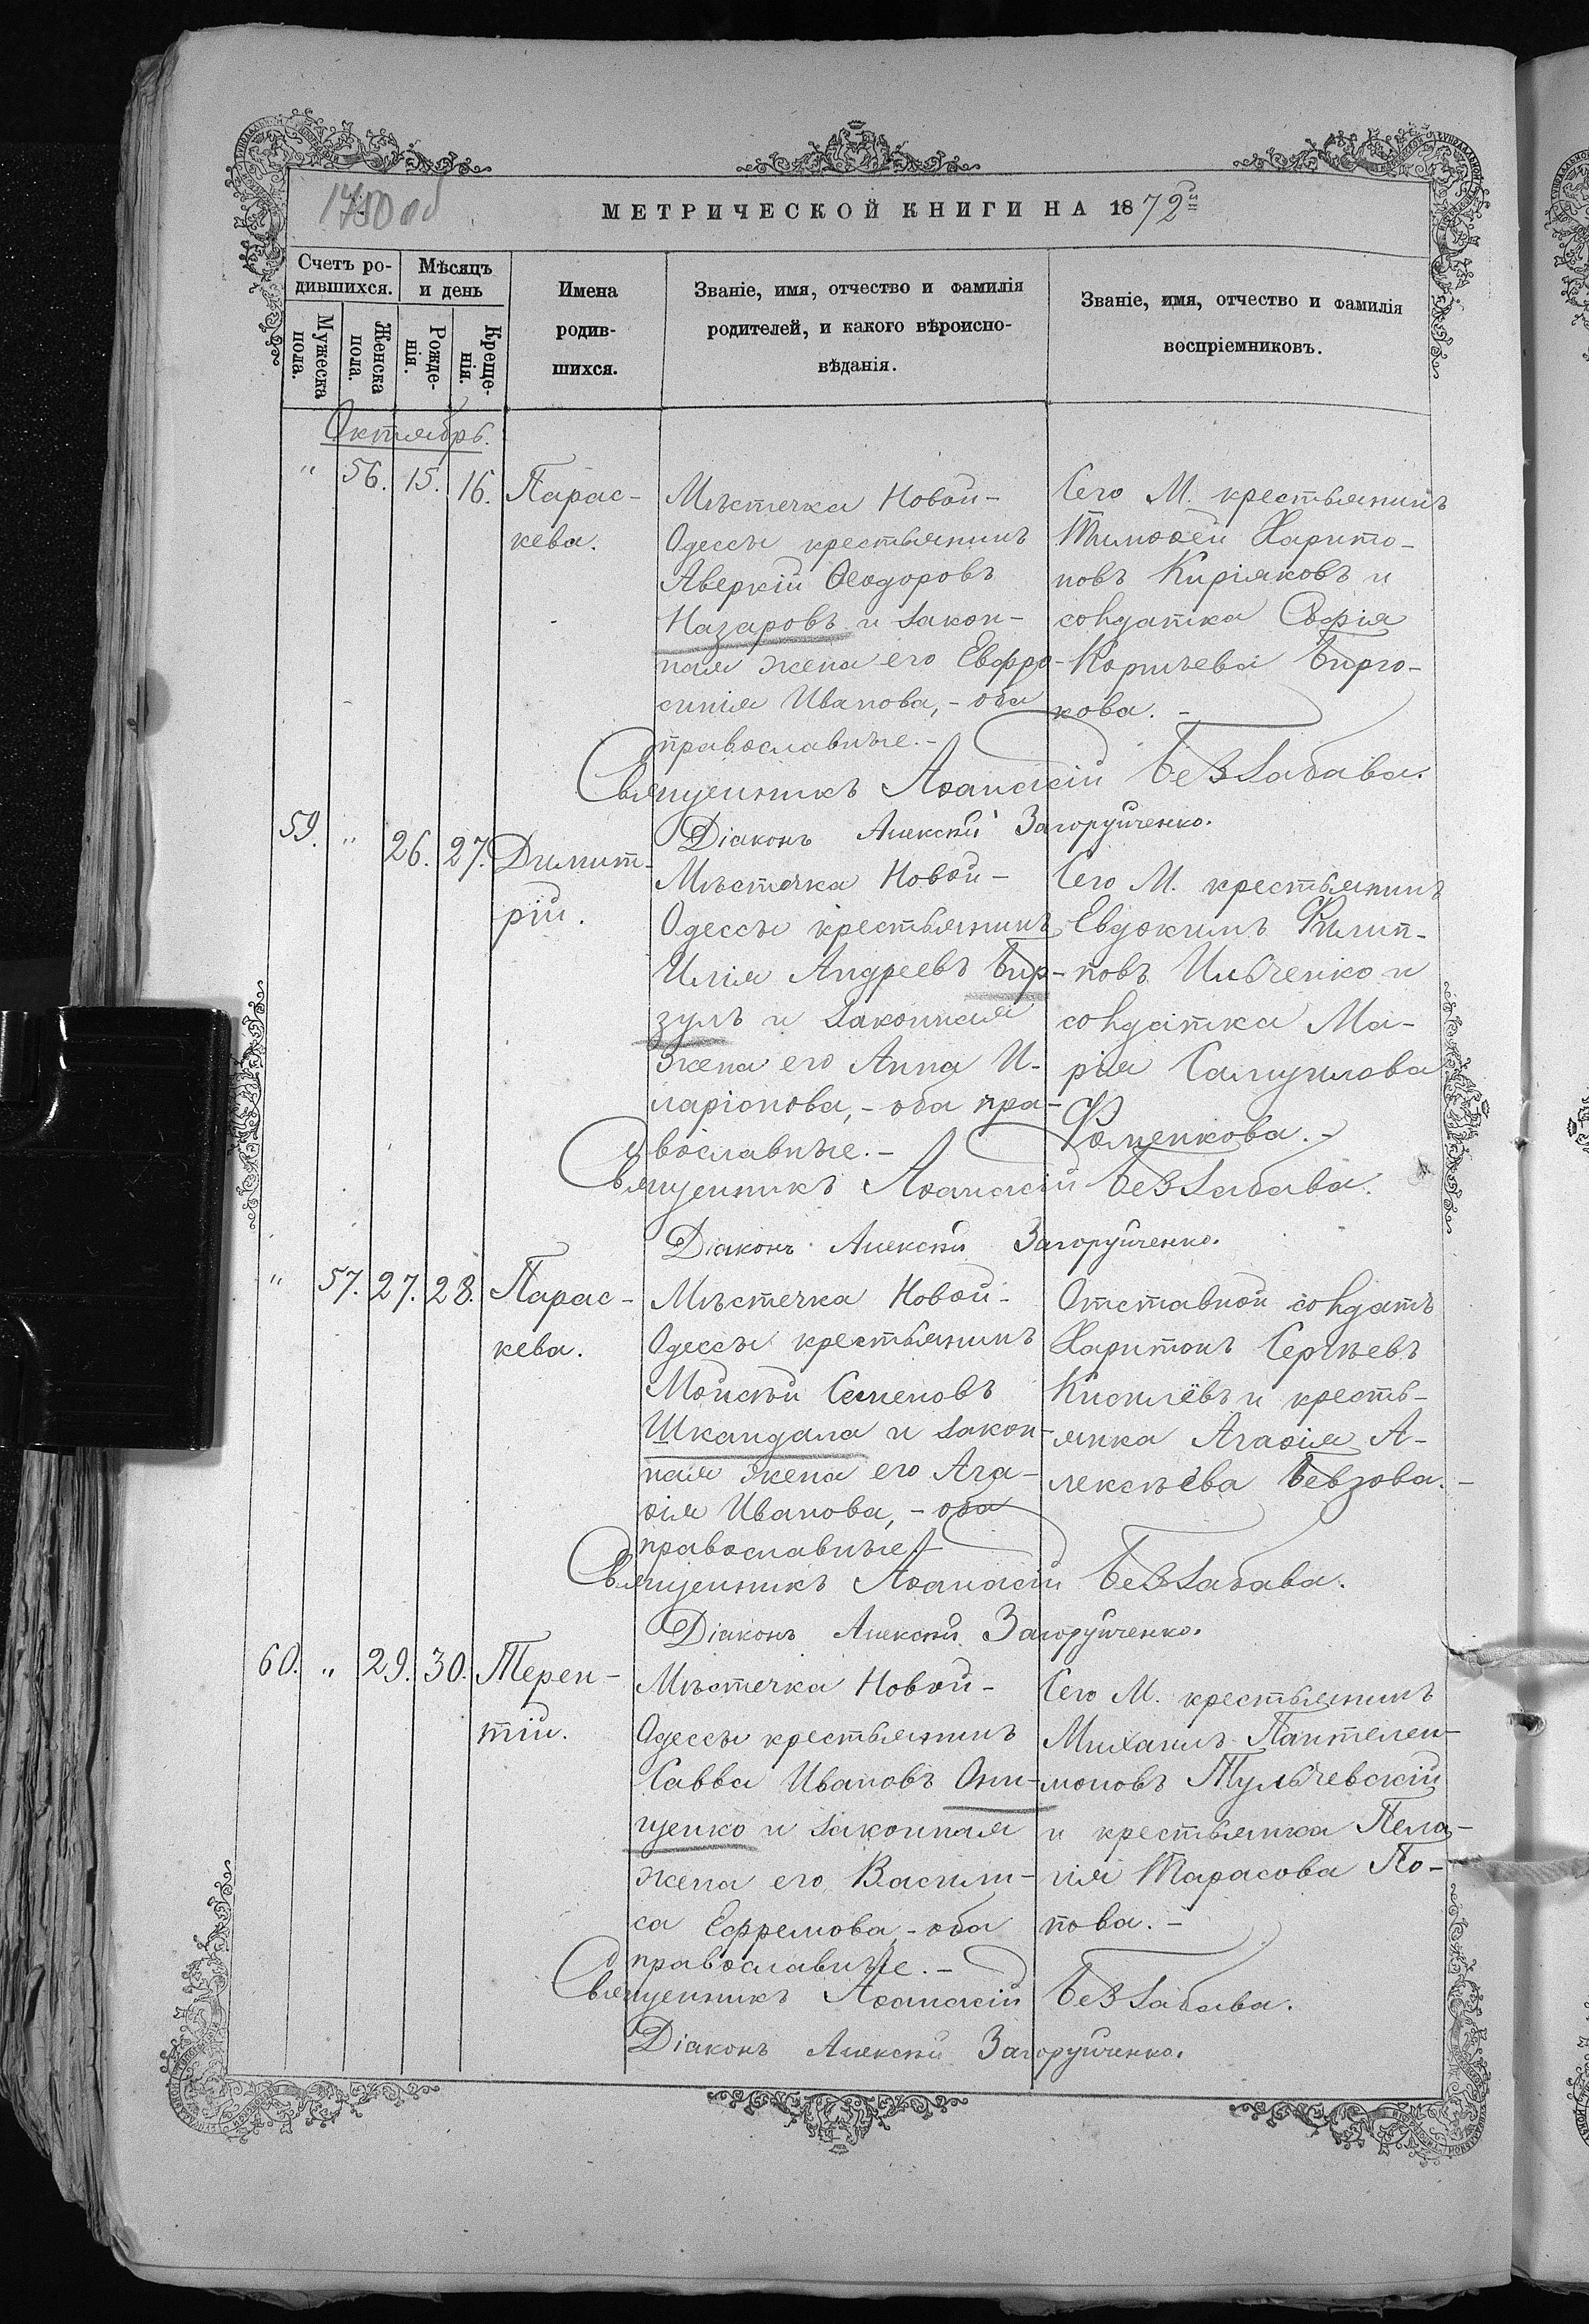 1750 об
МЕТРИЧЕСКОЙ КНИГИ НА 1872й
Счетъ ро-
дившихся.
Мѣсяцъ
и день
Мужеска
пола.
Женска
пола.
Рожде-
нія.
Креще-
нія.
Имена
родив-
шихся.
Званіе, имя, отчество и фамилія
родителей, и какого вѣроиспо-
вѣданія.
Званіе, имя, отчество и фамилія
воспріемниковъ.
Октябрь.
" 56. 15. 16.
Парас-
кева.
Мѣстечка Новой-
Одессы крестьянинъ
Аверкій Ѳеодоровъ
Назаровъ и закон-
ная жена его Евфро-
синія Иванова, - оба
православные. -
Сего М. крестьянинъ
Тимоѳей Харито-
новъ Киріяковъ и
солдатка Софія
Корнѣева Бирю-
кова. -
Священникъ Аѳанасій Беззабава.
Діаконъ Алексѣй Загоруйченко.
59. " 26. 27.
Димит-
рій.
Мѣстечка Новой-
Одессы крестьянинъ
Илія Андреевъ Бир-
зулъ и законная
жена его Анна И-
ларіонова, - оба пра-
вославные. -
Сего М. крестьянинъ
Евдокимъ Филип-
повъ Ильченко и
солдатка Ма-
рія Самуилова
Фоменкова. -
Священникъ Аѳанасій Беззабава.
Діаконъ Алексѣй Загоруйченко.
" 57. 27. 28.
Парас-
кева.
Мѣстечка Новой-
Одессы крестьянинъ
Мойсѣй Семеновъ
Шкандала и закон-
ная жена его Ага-
ѳія Иванова, - оба
православные. -
Отставной солдатъ
Харитонъ Сергѣевъ
Киселёвъ и кресть-
янка Агаѳія А-
лексѣева Бевзова. -
Священникъ Аѳанасій Беззабава.
Діаконъ Алексѣй Загоруйченко.
60. " 29. 30.
Терен-
тій.
Мѣстечка Новой-
Одессы крестьянинъ
Савва Ивановъ Они-
щенко и законная
жена его Васили-
са Ефремова, - оба
православные. -
Сего М. крестьянинъ
Михаилъ Пантелеи-
моновъ Тульчевскій
и крестьянка Пела-
гія Тарасова По-
пова. -
Священникъ Аѳанасій Беззабава.
Діаконъ Алексѣй Загоруйченко.